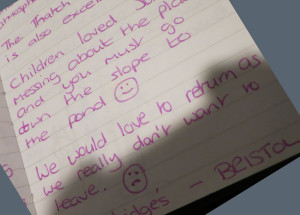 The Thatch
is also excel
Children loved
messing about the pla
and you must go
down the slope to
the pond
We would love to return as
we really don't want to
leave.
- BRISTOL